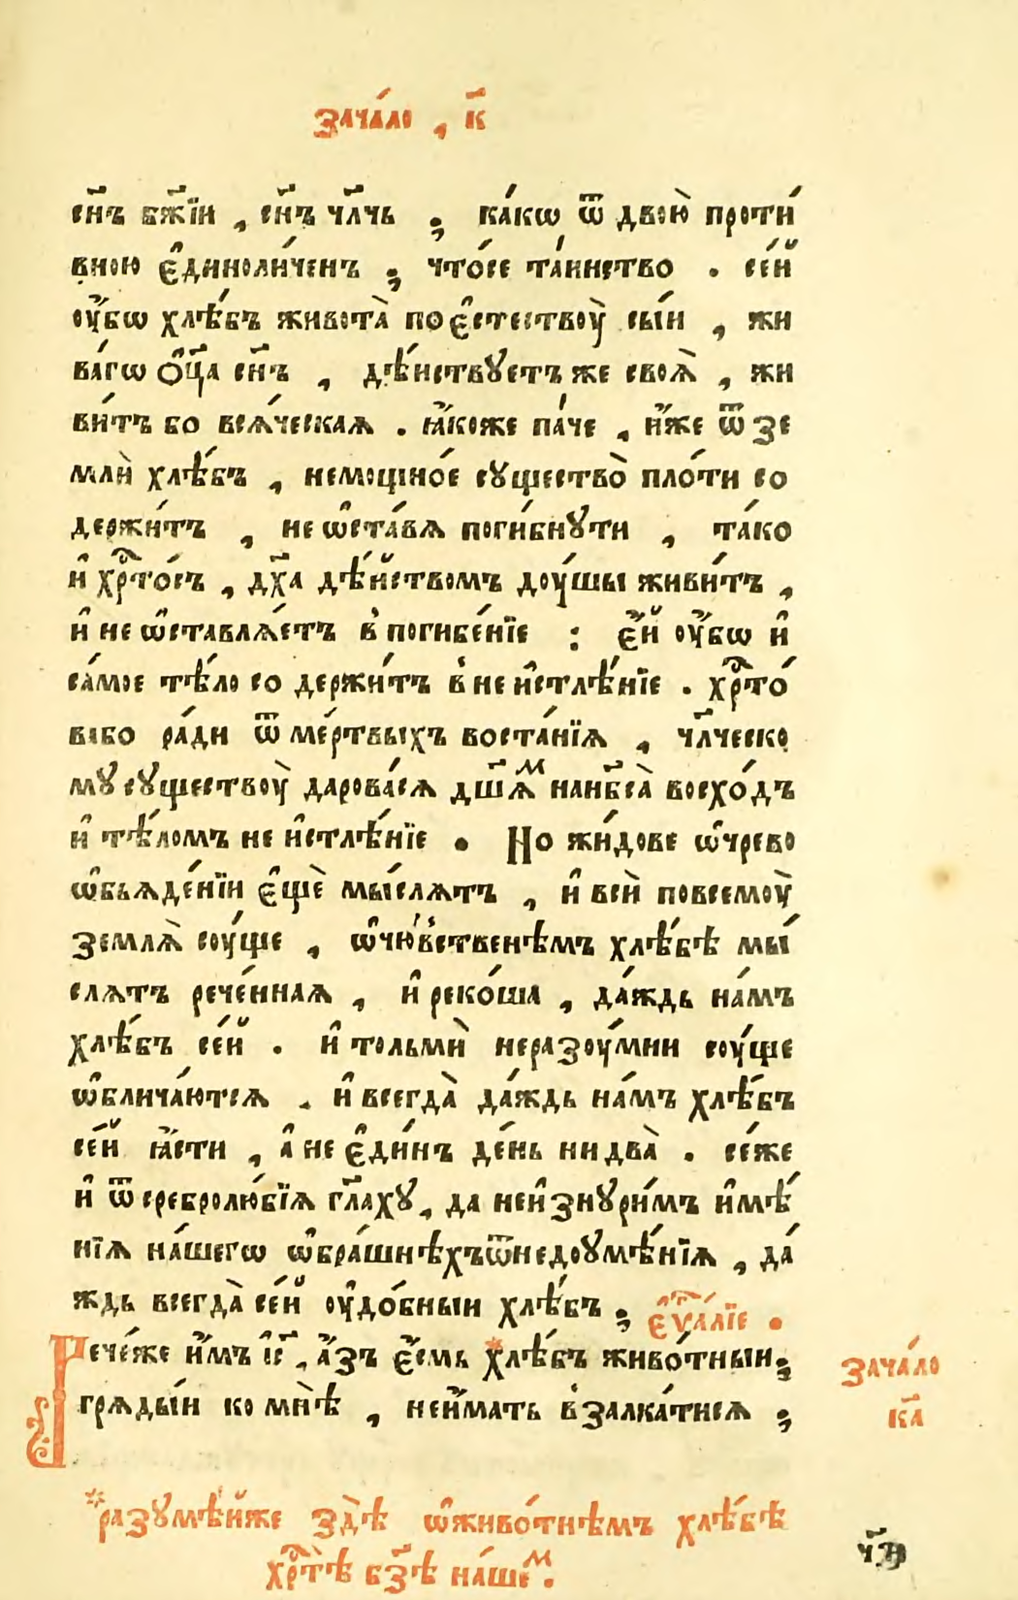 зача́ло , к҃
сн҃ъ бж҃їи , сн҃ъ чл҃чь ; ка́кѡ ѿ двою̀ проти́
вною є҆диноли́ченъ ; что́се та́инство . се́й
оу҆́бѡ хлѣ́бъ живота̀ по є҆стествоу̀ сы́и , жи
ва́гѡ ѻ҆ц҃а сн҃ъ , дѣ́иствꙋетъ же своѧ̀ , жи
ви́тъ бо всѧ́ческаѧ . ꙗ҆́коже па́че , и҆́же ѿ зе
млѝ хлѣ́бъ , немощно́е сꙋщество̀ пло́ти со
держи́тъ , не ѡ҆ста́вѧ поги́бнꙋти , та́ко
и҆ хрⷭ҇то́съ , дх҃а дѣ́йствомъ доу́шы живи́тъ ,
и҆ не ѡ҆ставлѧ́етъ в̾ погибе́нїе : є҆́й оу҆́бѡ и҆
са́мое тѣ́ло со держи́тъ в̾ не и҆стлѣ́нїе . хрⷭ҇то́
вѣбо ра́ди ѿ ме́ртвыхъ воста́нїѧ , чл҃ческо
мꙋ сꙋществоу̀ дарова́сѧ дш҃ѧⷨ нанб҃са̀ восхо́дъ
и҆ тѣ́ломъ не и҆стлѣ́нїе . Но жи́дове ѡ҆чрево
ѡ҆бьѧде́нїи є҆щѐ мы́слѧтъ , и҆ всѝ повсемоу̀
землѧ̀ соу́ще , ѡ҆чю́вственѣмъ хлѣ́бѣ мы́
слѧтъ рече́ннаѧ , и҆ реко́ша , да́ждь на́мъ
хлѣ́бъ се́й . и҆ тольмѝ неразоу́мнии соу́ще
ѡ҆блича́ютсѧ . и҆ всегда̀ да́ждь на́мъ хлѣ́бъ
се́й ꙗ҆́сти , а҆ не є҆ди́нъ де́нь ни два̀ . се́же
и҆ ѿ сребролю́бїѧ гл҃ахꙋ , да неи҆знꙋри́мъ и҆мѣ́
нїѧ на́шегѡ ѡ҆бра́шнѣхъѿнедоꙋмѣ́нїѧ , да́
ждь всегда̀ се́й оу҆до́бныи хлѣ́бъ ; є҆ѵⷢ҇а́лїе .
Рече́же и҆́мъ і҆с҃ , а҆́зъ є҆́смь * хлѣ́бъ живо́тныи ;
грѧды́и ко мнѣ̀ , неи҆́мать в̾залка́тисѧ ;
зача́ло
ка҃
* разꙋмѣ́йже здѣ̀ ѡ҆живо́тнѣмъ хлѣ́бѣ
хрⷭ҇тѣ̀ бз҃ѣ на́шеⷨ .